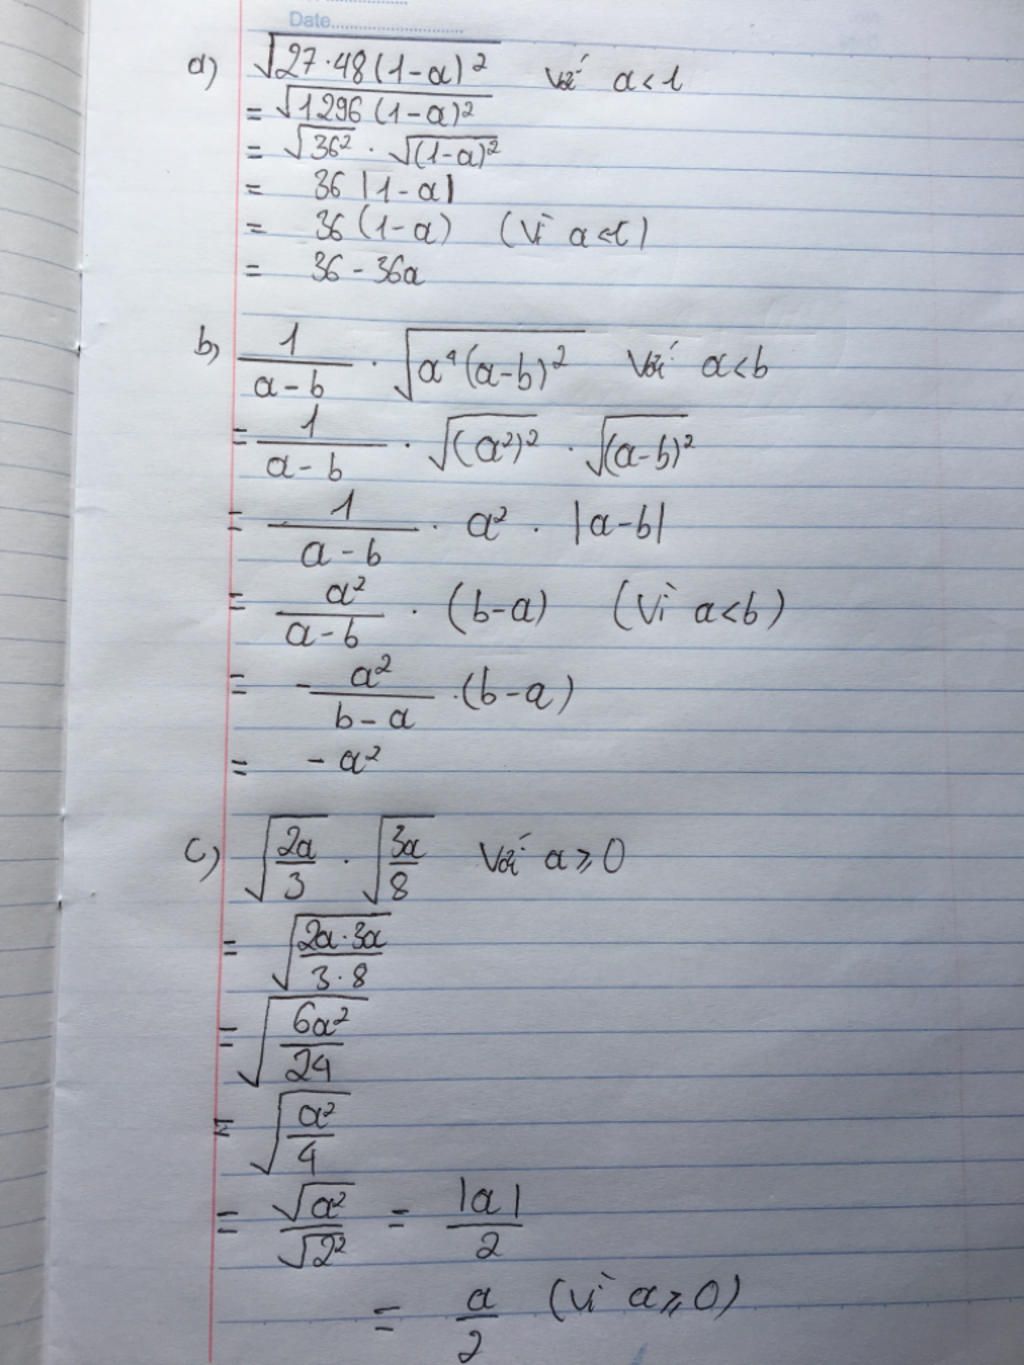 Date
a) √27·48(1-a)² với a<1
= √1296(1-a)²
= √36² · √(1-a)²
= 36 |1-a|
= 36 (1-a) (vì a<1)
= 36 - 36a
b) 1/(a-b) · √a⁴(a-b)² với a<b
= 1/(a-b) · √(a²)² · √(a-b)²
= 1/(a-b) · a² · |a-b|
= a²/(a-b) · (b-a) (vì a<b)
= -a²/(b-a) · (b-a)
= -a²
c) √(2a/3) · √(3a/8) với a≥0
= √(2a·3a/3·8)
= √(6a²/24)
= √(a²/4)
= √a²/√2² = |a|/2
= a/2 (vì a≥0)